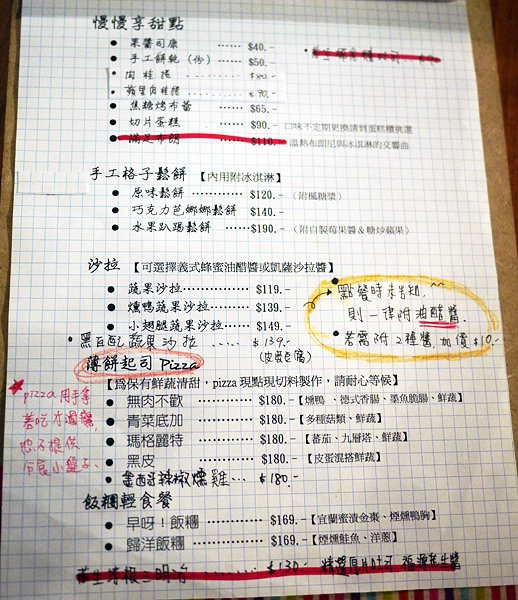 慢慢享甜點
● 果醬司康 ······ $40.-
● 手工餅乾 (份) ······ $50.-
● 焦糖烤布蕾 ······ $65.-
● 切片蛋糕 ······ $90.- 口味不定期更換請到蛋糕櫃挑選
● 滿足布朗 ······ $110.- 溫熱布朗尼與冰淇淋的交響曲
手工格子鬆餅 【內用附冰淇淋】
● 原味鬆餅 ············ $120.- (附楓糖漿)
● 巧克力芭娜娜鬆餅 $140.-
● 水果趴踢鬆餅 ······ $190.- (附自製莓果醬&糖炒蘋果)
沙拉 【可選擇義式蜂蜜油醋醬或凱薩沙拉醬】
● 蔬果沙拉 ············ $119.-
● 燻鴨蔬果沙拉 ······ $139.-
● 小翅腿蔬果沙拉 ··· $149.-
● 黑白配蔬果沙拉 ···· $139.-
(皮蛋豆腐)
● 點餐時未告知,
則一律附油醋醬.
● 若需附2種醬加價$10.-
薄餅起司 Pizza
【為保有鮮蔬清甜,pizza 現點現切料製作,請耐心等候】
● 無肉不歡 ············ $180.-【燻鴨 、德式香腸、墨魚脆腸、鮮蔬】
● 青菜底加 ············ $180.-【多種菇類、鮮蔬】
● 瑪格麗特 ············ $180.-【蕃茄、九層塔、鮮蔬】
● 黑皮 ············ $180.-【皮蛋混搭鮮蔬】
● 墨西哥辣椒燻雞 ... $180.-
★ pizza用手拿
著吃才過癮,
恕不提供
飯糰輕食餐
● 早呀!飯糰 ············ $169.-【宜蘭蜜漬金棗、煙燻鴨胸】
● 歸洋飯糰 ············ $169.-【煙燻鮭魚、洋蔥】